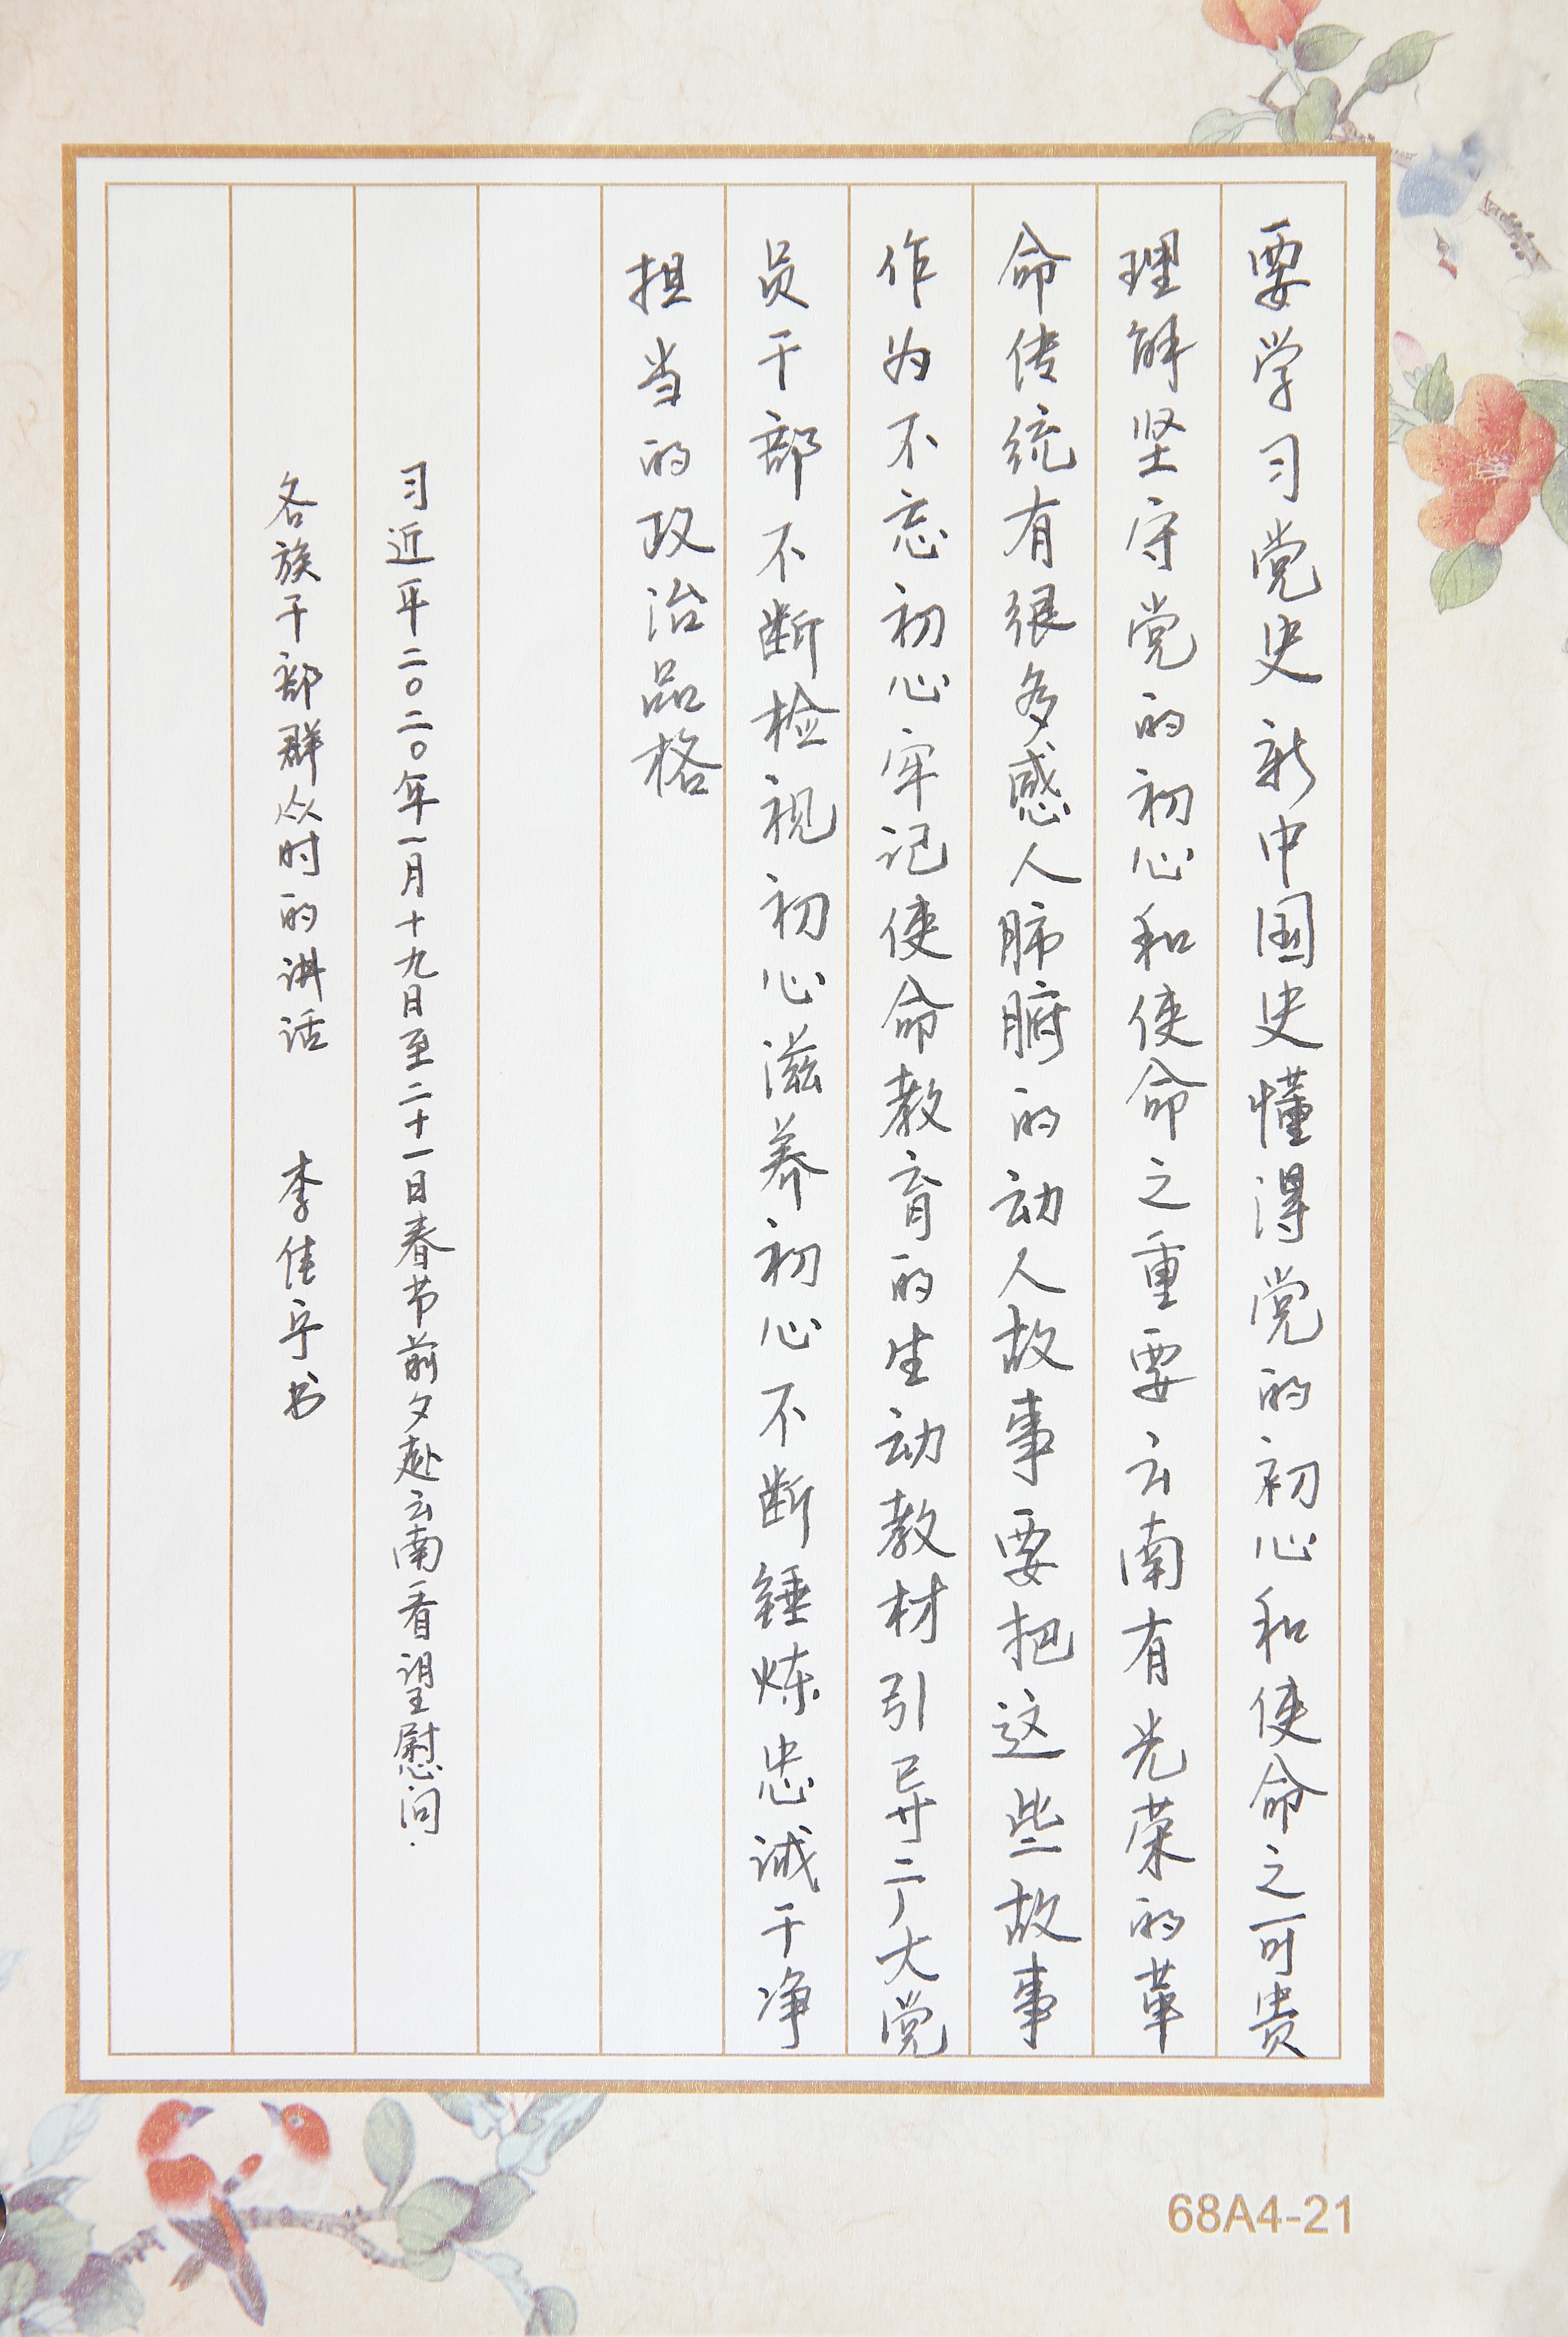 要学习党史新中国史懂得党的初心和使命之可贵
理解坚守党的初心和使命之重要云南有光荣的革
命传统有很多感人肺腑的动人故事要把这些故事
作为不忘初心牢记使命教育的生动教材引导广大党
员干部不断检视初心滋养初心不断锤炼忠诚干净
担当的政治品格
习近平二〇二〇年一月十九日至二十一日春节前夕赴云南看望慰问
各族干部群众时的讲话 李佳乎书
68A4-21